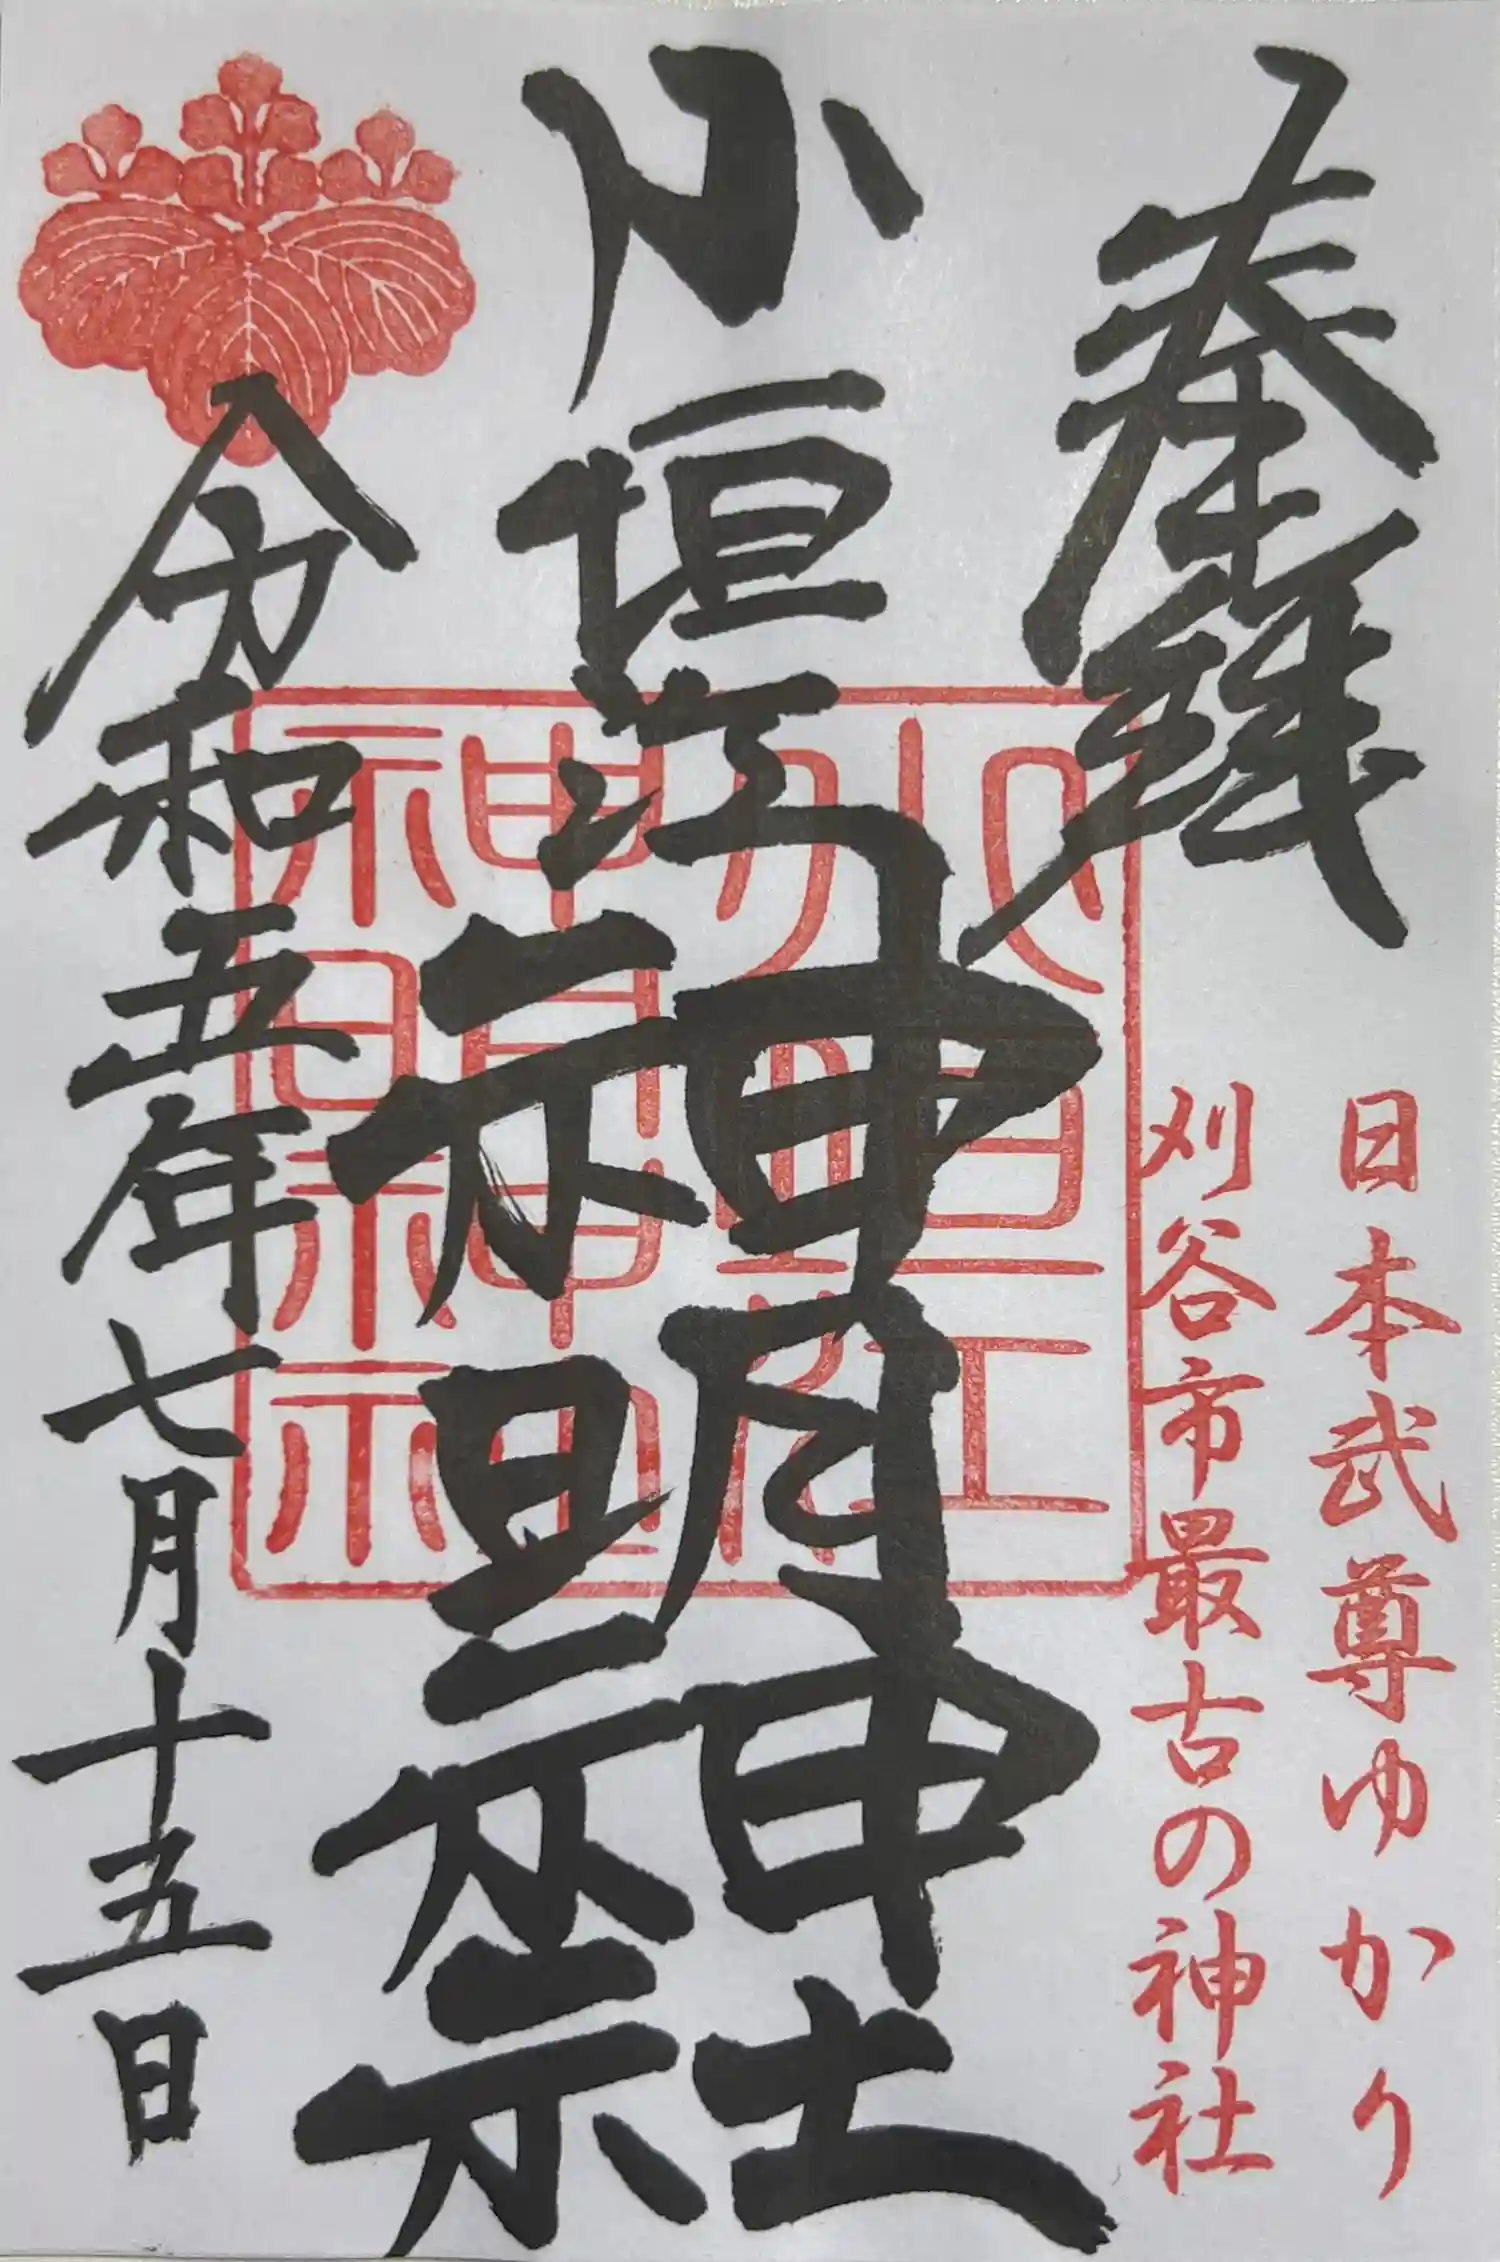 日本武尊ゆかり
刈谷市最古の神社
小垣江神明神社
小垣江
神明神社
令和五年七月十五日